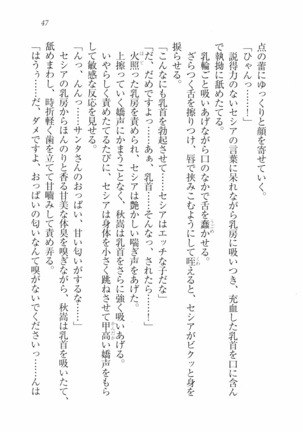 47
点の蕾にゆっくりと顔を寄せていく。
「ひゃんっ……」
説得力のないセシアの言葉に呆れながら乳房に吸いつき、充血した乳首を口に含んで執拗に舐めたてる。
乳輪ごと吸いあげながら口のなかで舌を蠢かせる。
ざらつく舌を擦りつけ、唇に挟みこむようにして咥えると、セシアがビクッと身を捩らせる。
「こんなにも乳首を勃起させて……セシアはエッチな子だな」
「だ、だめですよっ……あぁ、乳首……そんなっ、されたら……」
火照った乳房を責められ、セシアは艶かしい喘ぎ声をあげた。
上擦っていく嬌声にかまうことなく、秋嵩は乳首をさらに強く吸いあげる。
いやらしく責めたてるたびに、セシアは身体を小さく跳ねさせて甲高い嬌声をもらして敏感な反応を見せる。
「んっ、んんっ……サンタさんのおっぱい、甘い匂いがするな……」
セシアの乳房からほんのりと香る甘美な体臭を嗅ぎながら、秋嵩は乳首を吸いたて、舐めまわし、時折軽く歯を立てて甘噛みして責め弄る。
「はうぅ……だ、ダメですよ、おっぱいの匂いなんて嗅がないでくださいっ……んは